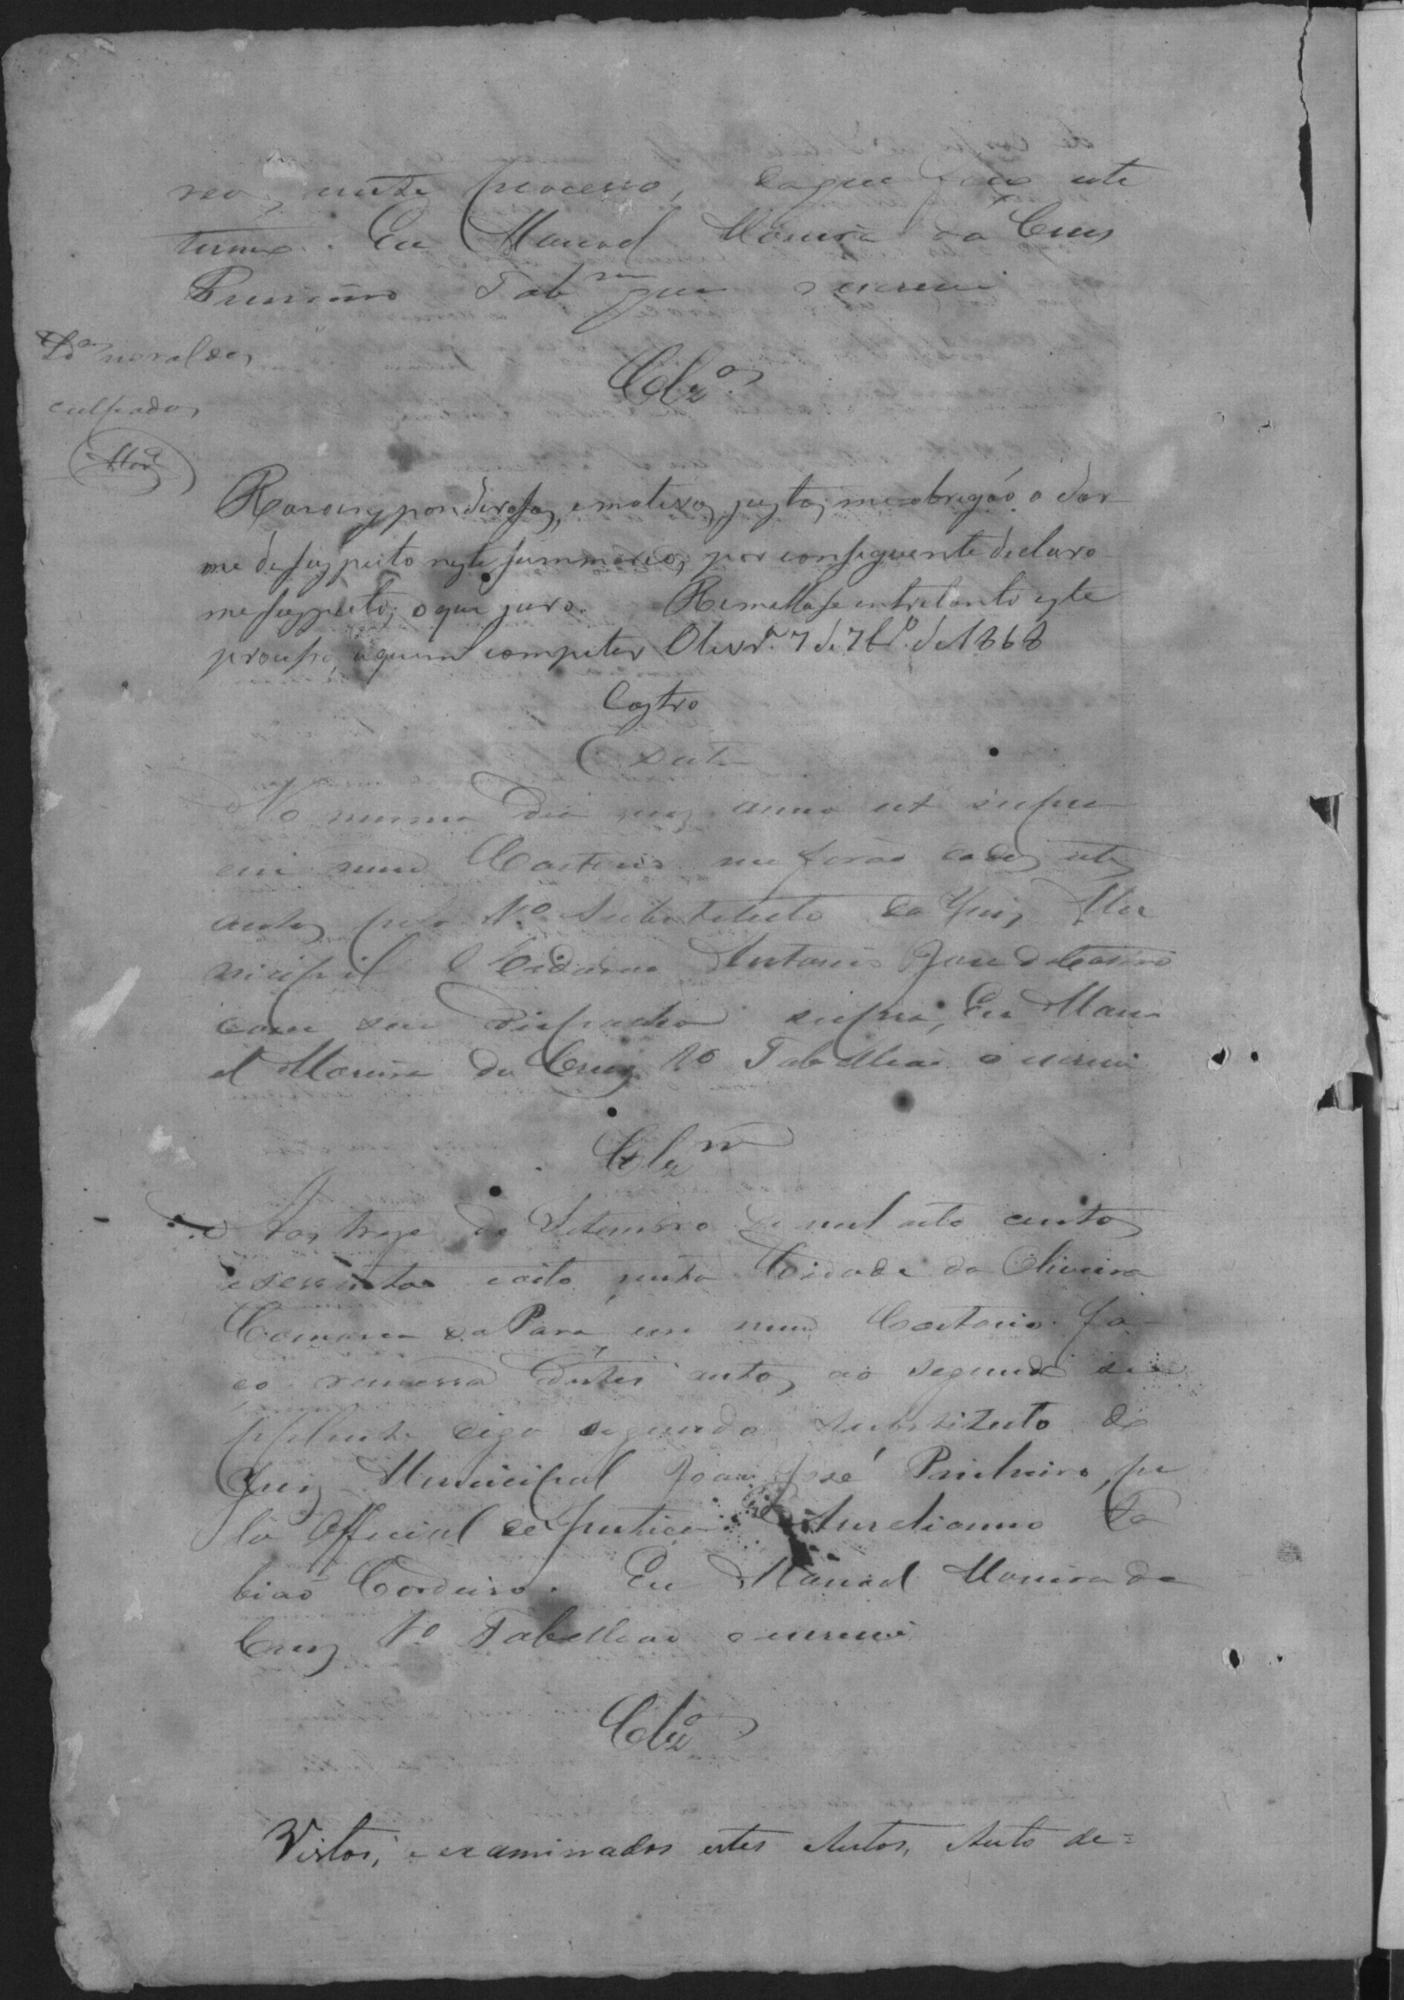 reo, neste processo, do que faço este
termo. Eu Manoel Moreira da Cruz
Primeiro Tab.am que escrevi
Clz.os
culpados
Razoens ponderosas, e motivos justos, me obrigão a dar
me de suspeito neste summario, por conseguinte declaro
me suspeito, o que juro. Remetta-se entretanto este
processo, a quem competir Olivr.a 7 de 7br.o de 1868
Castro
Data
No mesmo dia mez anno ut supra
em meu Cartorio me forão dados estes
autos pelo 1º Substituto do Juiz Mu
nicipal o Cidadão Antonio José de Castro
com seu despacho supra, Eu Mano
el Moreira da Cruz 1º Tabellião o escrevi
Clz.m
Aos treze de Setembro de mil oito centos
e sessenta e oito, nesta Cidade da Oliveira
Comarca do Pará, em meu Cartorio fa
ço remessa destes autos ao segundo su
pplente digo segundo Substituto do
Juiz Municipal João José Pinheiro, pe
lo Official de Justiça Aureliano Fa
bião Cordeiro. Eu Manoel Moreira da
Cruz 1º Tabellião o escrevi
Clz.os
Vistos, e examinados estes Autos, Auto de=